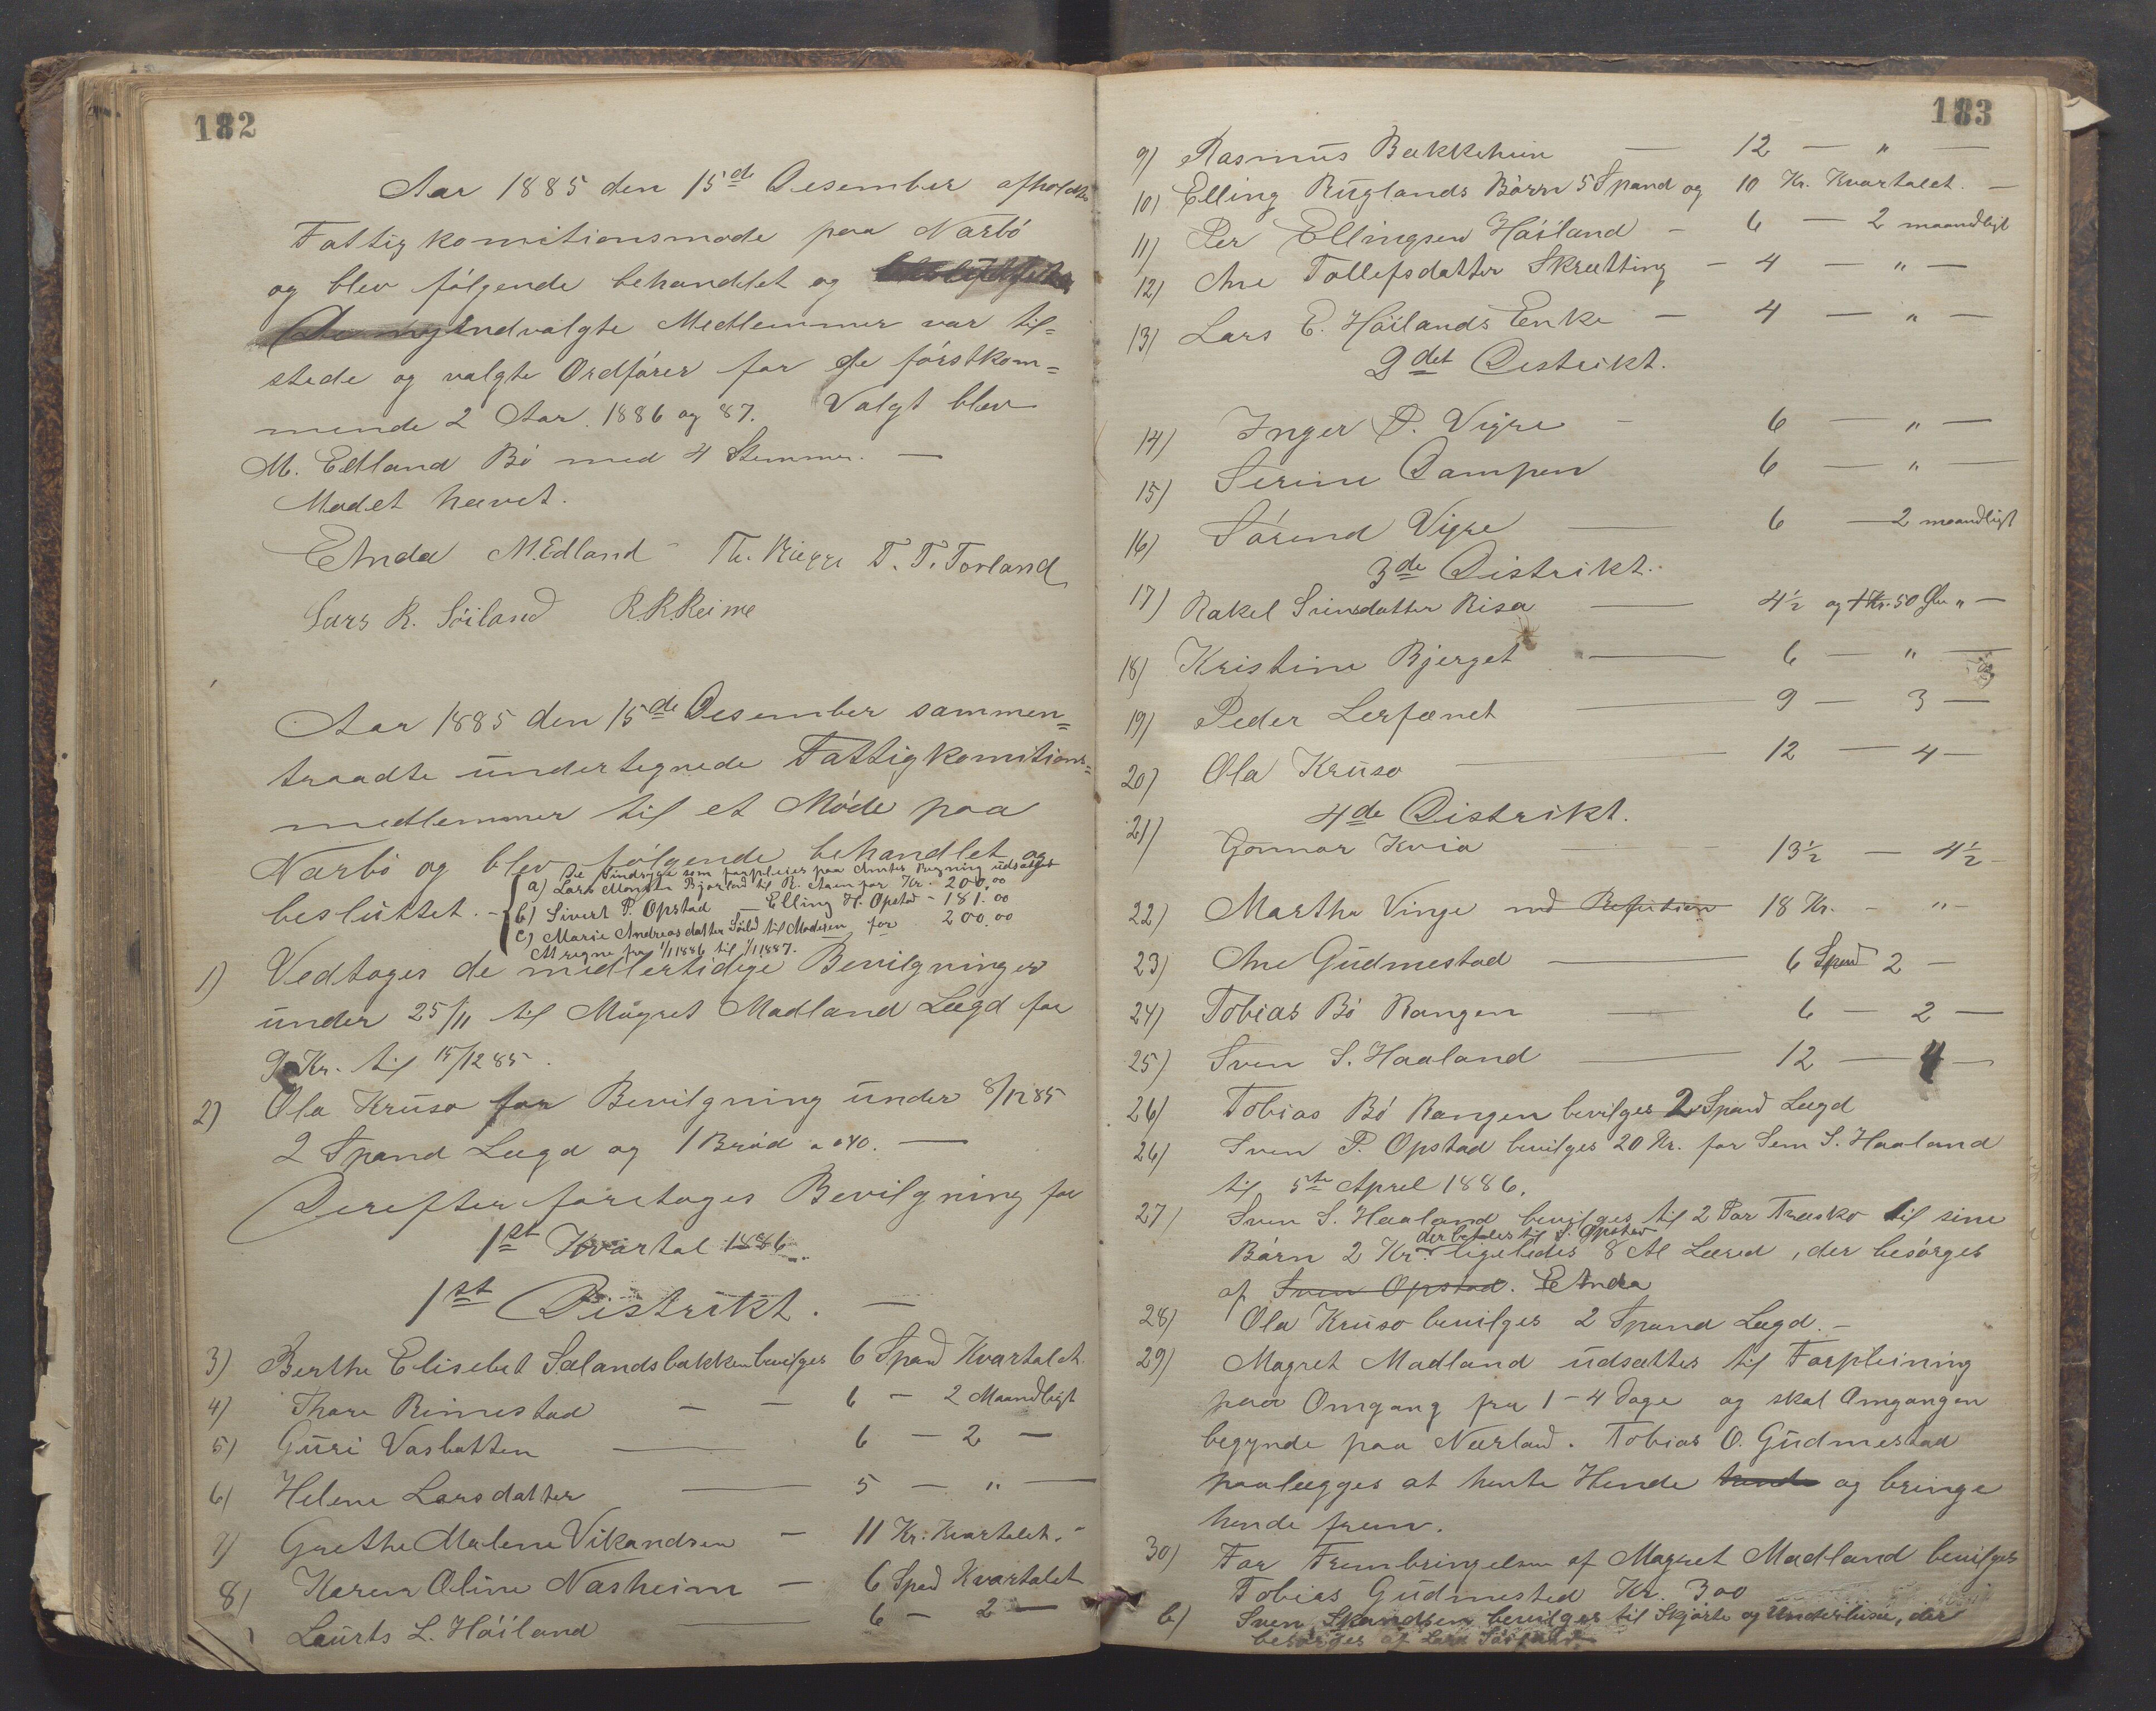 182
Aar 1885 den 15de Desember afholdtes
Fattigkomitionsmøde paa Nærbø
og blev følgende behandlet og
De nyindvalgte Medlemmer var til=
stede og valgte Ordfører for de førstkom=
mende 2 Aar. 1886 og 87. Valgt blev
M. Edland Bø med 4 Stemmer. —
Mødet hævet.
E Anda M. Edland Th. Riegge T. T. Torland
Lars R. Söiland R. R. Reime
Aar 1885 den 15de Desember sammen=
traadte undertegnede Fattigkomitions=
medlemmer til et Møde paa
Nærbø og blev følgende behandlet og
besluttet. —
De sindssyge som forpleies paa Amtes Regning udsattes
a) Lars Monsen Bjorland til R. Aam for Kr. 200.00
b) Sivert P. Opstad — Elling H. Opstad - 181.00
c) Marie Andreasdatter Söild til Moderen for 200.00
At regne fra 1/1 1886 til 1/1 1887.
1) Vedtages de midlertidige Bevilgninger
under 25/11 til Mágret Madland Lægd for
9 Kr. til 15/12 85.
2) Ola Kruso for Bevilgning under 8/12 85
2 Spand Lægd og 1 Brød a 040. —
Derefter foretoges Bevilgning for
1st Kvartal 1886.
1st Distrikt. —
3) Berthe Elisebet Sælandsbakken bevilges 6 Spand Kvartalet
4) Thore Rimestad — — 6 — 2 Maandligt
5) Guri Vasbotten — 6 — 2 —
6) Helene Larsdatter — 5 — " —
7) Grethe Malene Vikandsen — 11 Kr. Kvartalet. -
8) Karen Oline Næsheim — 6 Spad Kvartalet
Laurts L. Höiland — 6 — 2 —
183
9) Rasmus Bakkehun — 12 — " —
10) Elling Ruglands Börn 5 Spand og 10 Kr. Kvartalet. —
11) Per Ellingsen Höiland — 6 — 2 maandligt
12) Ane Tollefsdatter Skrætting — 4 — " —
13) Lars E. Höilands Enke — 4 — " —
2det Distrikt.
14) Inger P. Vigre — 6 — " —
15) Serine Dampen 6 — " —
16) Sörend Vigre — 6 — 2 maandligt
3de Distrikt.
17) Rakel Svinsdatter Risa — 4½ og 1 Kr. 50 Øre " —
18) Kristine Bjerget — 6 — " —
19) Peder Lerfænet — 9 — 3 —
20) Ola Kruso — 12 — 4 —
4de Distrikt.
21) Gonnar Kvia — 13½ — 4½ —
22) Martha Vinge md Refution 18 Kr. — " —
23) Ane Gudmestad — 6 Spand 2 —
24) Tobias Bö Rangen — 6 — 2 —
25) Sven S. Haaland — 12 — 4 —
26) Tobias Bö Rangen bevilges 2 Spand Lægd
26) Sven P. Opstad bevilges 20 Kr. for Sem S. Haaland
til 5te April 1886.
27) Sven S. Haaland bevilges til 2 Par Træsko til sine
der betales til S. Opstad
Börn 2 Kr. ligeledes 8 Al Læred, der besörges
af Sven Opstad. E Anda
28) Ola Kruso bevilges 2 Spand Lægd. —
29) Magret Madland udsættes til Forpleining
paa Omgang fra 1 - 4 Dage og skal Omgangen
begynde paa Nærland. Tobias O. Gudmestad
paalægges at hente Hende hende og bringe
hende frem.
30) For Frembringelsen af Magret Madland bevilges
Tobias Gudmested Kr. 300
b) Sven Skandsen bevilges til Skjorte og Underbuse, der
besörges af Lars